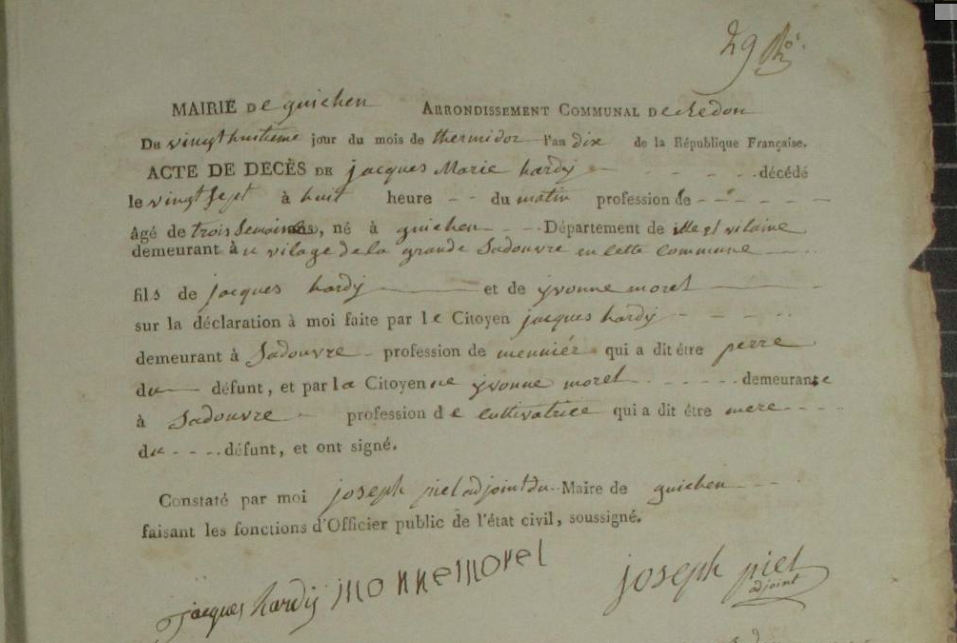 29
MAIRIE De guichen ARRONDISSEMENT COMMUNAL De redon
Du vingt huitieme jour du mois de thermidor l'an dix de la République Française.
ACTE DE DECÈS DE jacques Marie hardy - - - - - décédé
le vingt sept à huit heure - - du matin profession de - - - - -
âgé de trois Semaines, né à guichen - - - Département de ille et vilaine
demeurant à u vilage de la grande Sadouvre en cette commune
fils de jacques hardy et de yvonne morel
sur la déclaration à moi faite par le Citoyen jacques hardy - - - -
demeurant à Sadouvre - profession de meunier - qui a dit être perre
du défunt, et par la Citoyenne yvonne morel - - - - - demeurante
à Sadouvre - profession de cultivatrice qui a dit être mere - - - -
du - - - - défunt, et ont signé.
Constaté par moi joseph piel adjoint du Maire de guichen - - - -
faisant les fonctions d'Officier public de l'état civil, soussigné.
jacques hardy morel joseph piel
adjoint